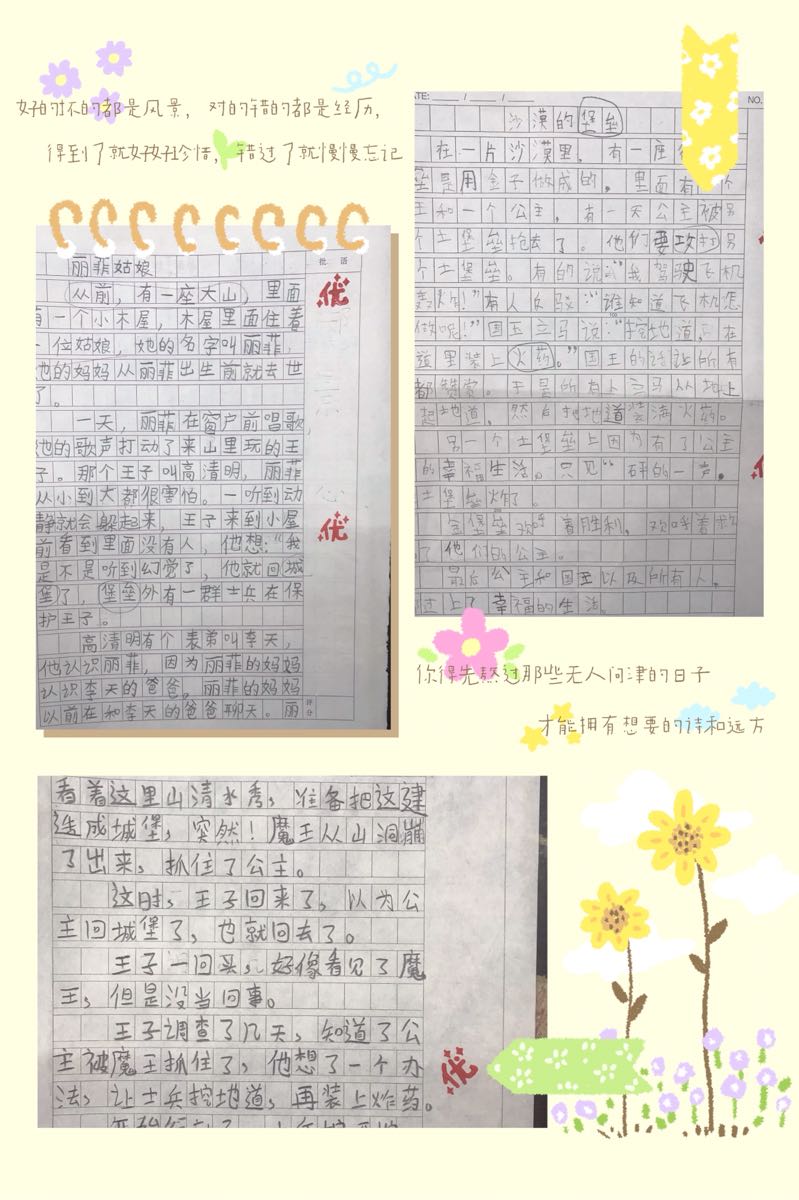 好的坏的都是风景，对的错的都是经历，
得到了就好好珍惜，错过了就慢慢忘记
丽菲姑娘
批语
从前，有一座大山，里面
有一个小木屋，木屋里面住着
一位姑娘，她的名字叫丽菲，
她的妈妈从丽菲出生前就去世
了。
一天，丽菲在窗户前唱歌，
她的歌声打动了来山里玩的王
子。那个王子叫高清明，丽菲
从小到大都很害怕。一听到动
静就会躲起来，王子来到小屋
前看到里面没有人，他想：“我
是不是听到幻觉了，他就回城
堡了，堡垒外有一群士兵在保
护王子。
高清明有个表弟叫李天，
他认识丽菲，因为丽菲的妈妈
认识李天的爸爸，丽菲的妈妈
以前在和李天的爸爸聊天。丽
优
优
评分
DATE: / /
NO.
沙漠的堡垒
在一片沙漠里，有一座
垒是用金子做成的，里面有 个
王和一个公主，有一天公主被另
个土堡垒抢去了。他们要攻打另
个土堡垒。有的说：“我驾驶飞机
轰炸！”有人反驳：“谁知道飞机怎
做呢！”国王立马说：“挖地道，在
道里装上火药。”国王的话让所有
都赞赏。于是所有人立马从地上
起地道，然后把地道装满火药。
另一个土堡垒上因为有了公主
的幸福生活。只见“砰的一声，
土堡垒炸了。
金堡垒欢呼着胜利，欢呼着救
了他们的公主。
最后公主和国王以及所有人，
过上了幸福的生活。
你得先熬过那些无人问津的日子
才能拥有想要的诗和远方
看着这里山清水秀，准备把这建
造成城堡，突然！魔王从山洞蹦
了出来，抓住了公主。
这时，王子回来了，以为公
主回城堡了，也就回去了。
王子一回头，好像看见了魔
王，但是没当回事。
王子调查了几天，知道了公
主被魔王抓住了，他想了一个办
法，让士兵挖地道，再装上炸药。
优